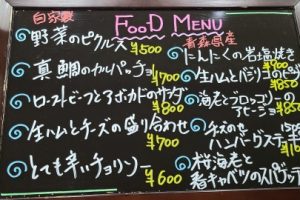 FOOD MENU
自家製
野菜のピクルス ¥500
真鯛のカルパッチョ ¥700
ローストビーフとアボカドのサラダ ¥800
生ハムとチーズの盛り合わせ ¥700
とても辛いチョリソー ¥600
青森県産
にんにくの岩塩焼き ¥400
生ハムとバジリコのピ ¥850
海老とブロッコリーの
アヒージョ ¥850
チーズのせ
ハンバーグステーキ
桜海老と
春キャベツのスパゲッテ